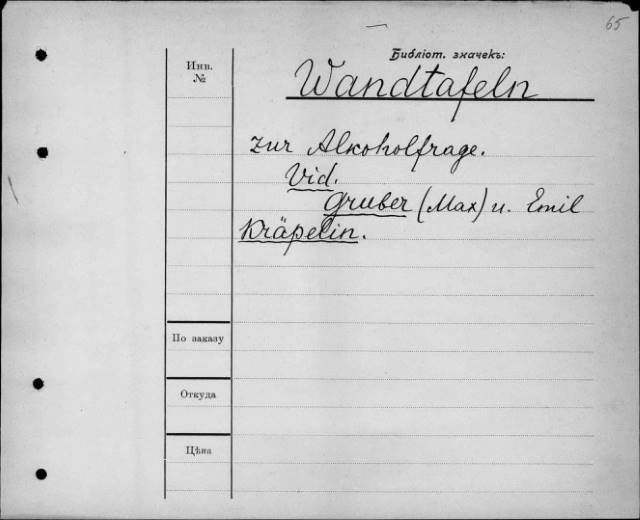 65
Библіот. значекъ:
Инв.
№
Wandtafeln
zur Alkoholfrage.
Vid.
Gruber (Max) u. Emil
Kräpelin.
По заказу
Откуда
Цѣна